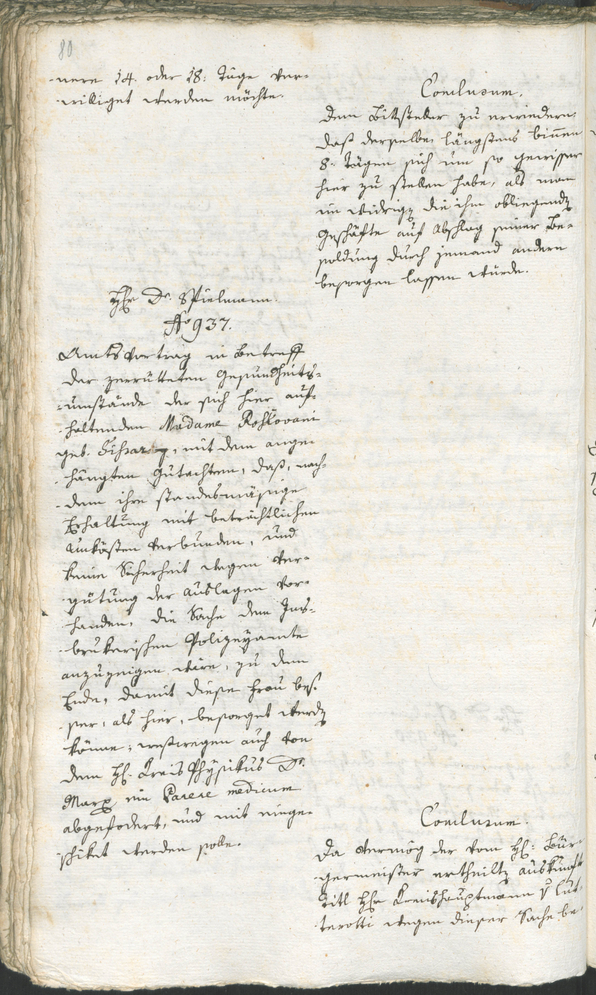 80
nere 14. oder 18: Täge ver-
williget werden möchte.
Conclusum.
dem Bittsteller zu erwiedern
daß derselbe längstens binnen
8. Tägen sich um so gewisser
hier zu stellen habe, als man
im widrigen die ihm obliegende
Geschäfte auf Abschlag seiner Be-
soldung durch jemand andern
besorgen lassen würde.
Hr. Dr. Spielmann.
No 937.
Amtsvortrag in betreff
der zerrütteten Gesundheits-
umstände der sich hier auf-
haltenden Madame
geb. mit dem ange-
hängten Gutachten, daß, nach-
dem ihre standesmäsige
Erhaltung mit beträchtlichen
Unkösten verbunden, und
keine Sicherheit wegen Ver-
gütung der Auslagen vor-
handen, die Sache dem Ins-
brukerischen Polizeyamte
anzuzeigen wäre, zu dem
Ende, damit diese Frau bes-
ser, als hier, besorget werden
könne; weswegen auch von
dem H. Kreis Physikus Dr.
Marx ein Parere medicum
abgefodert, und mit einge-
schikt werden solle.
Conclusum.
Da vermög der vom H: Bur-
germeister ertheilten Auskunft
Titl Hr Kreishauptmann v Lut-
terotti wegen dieser Sache be-